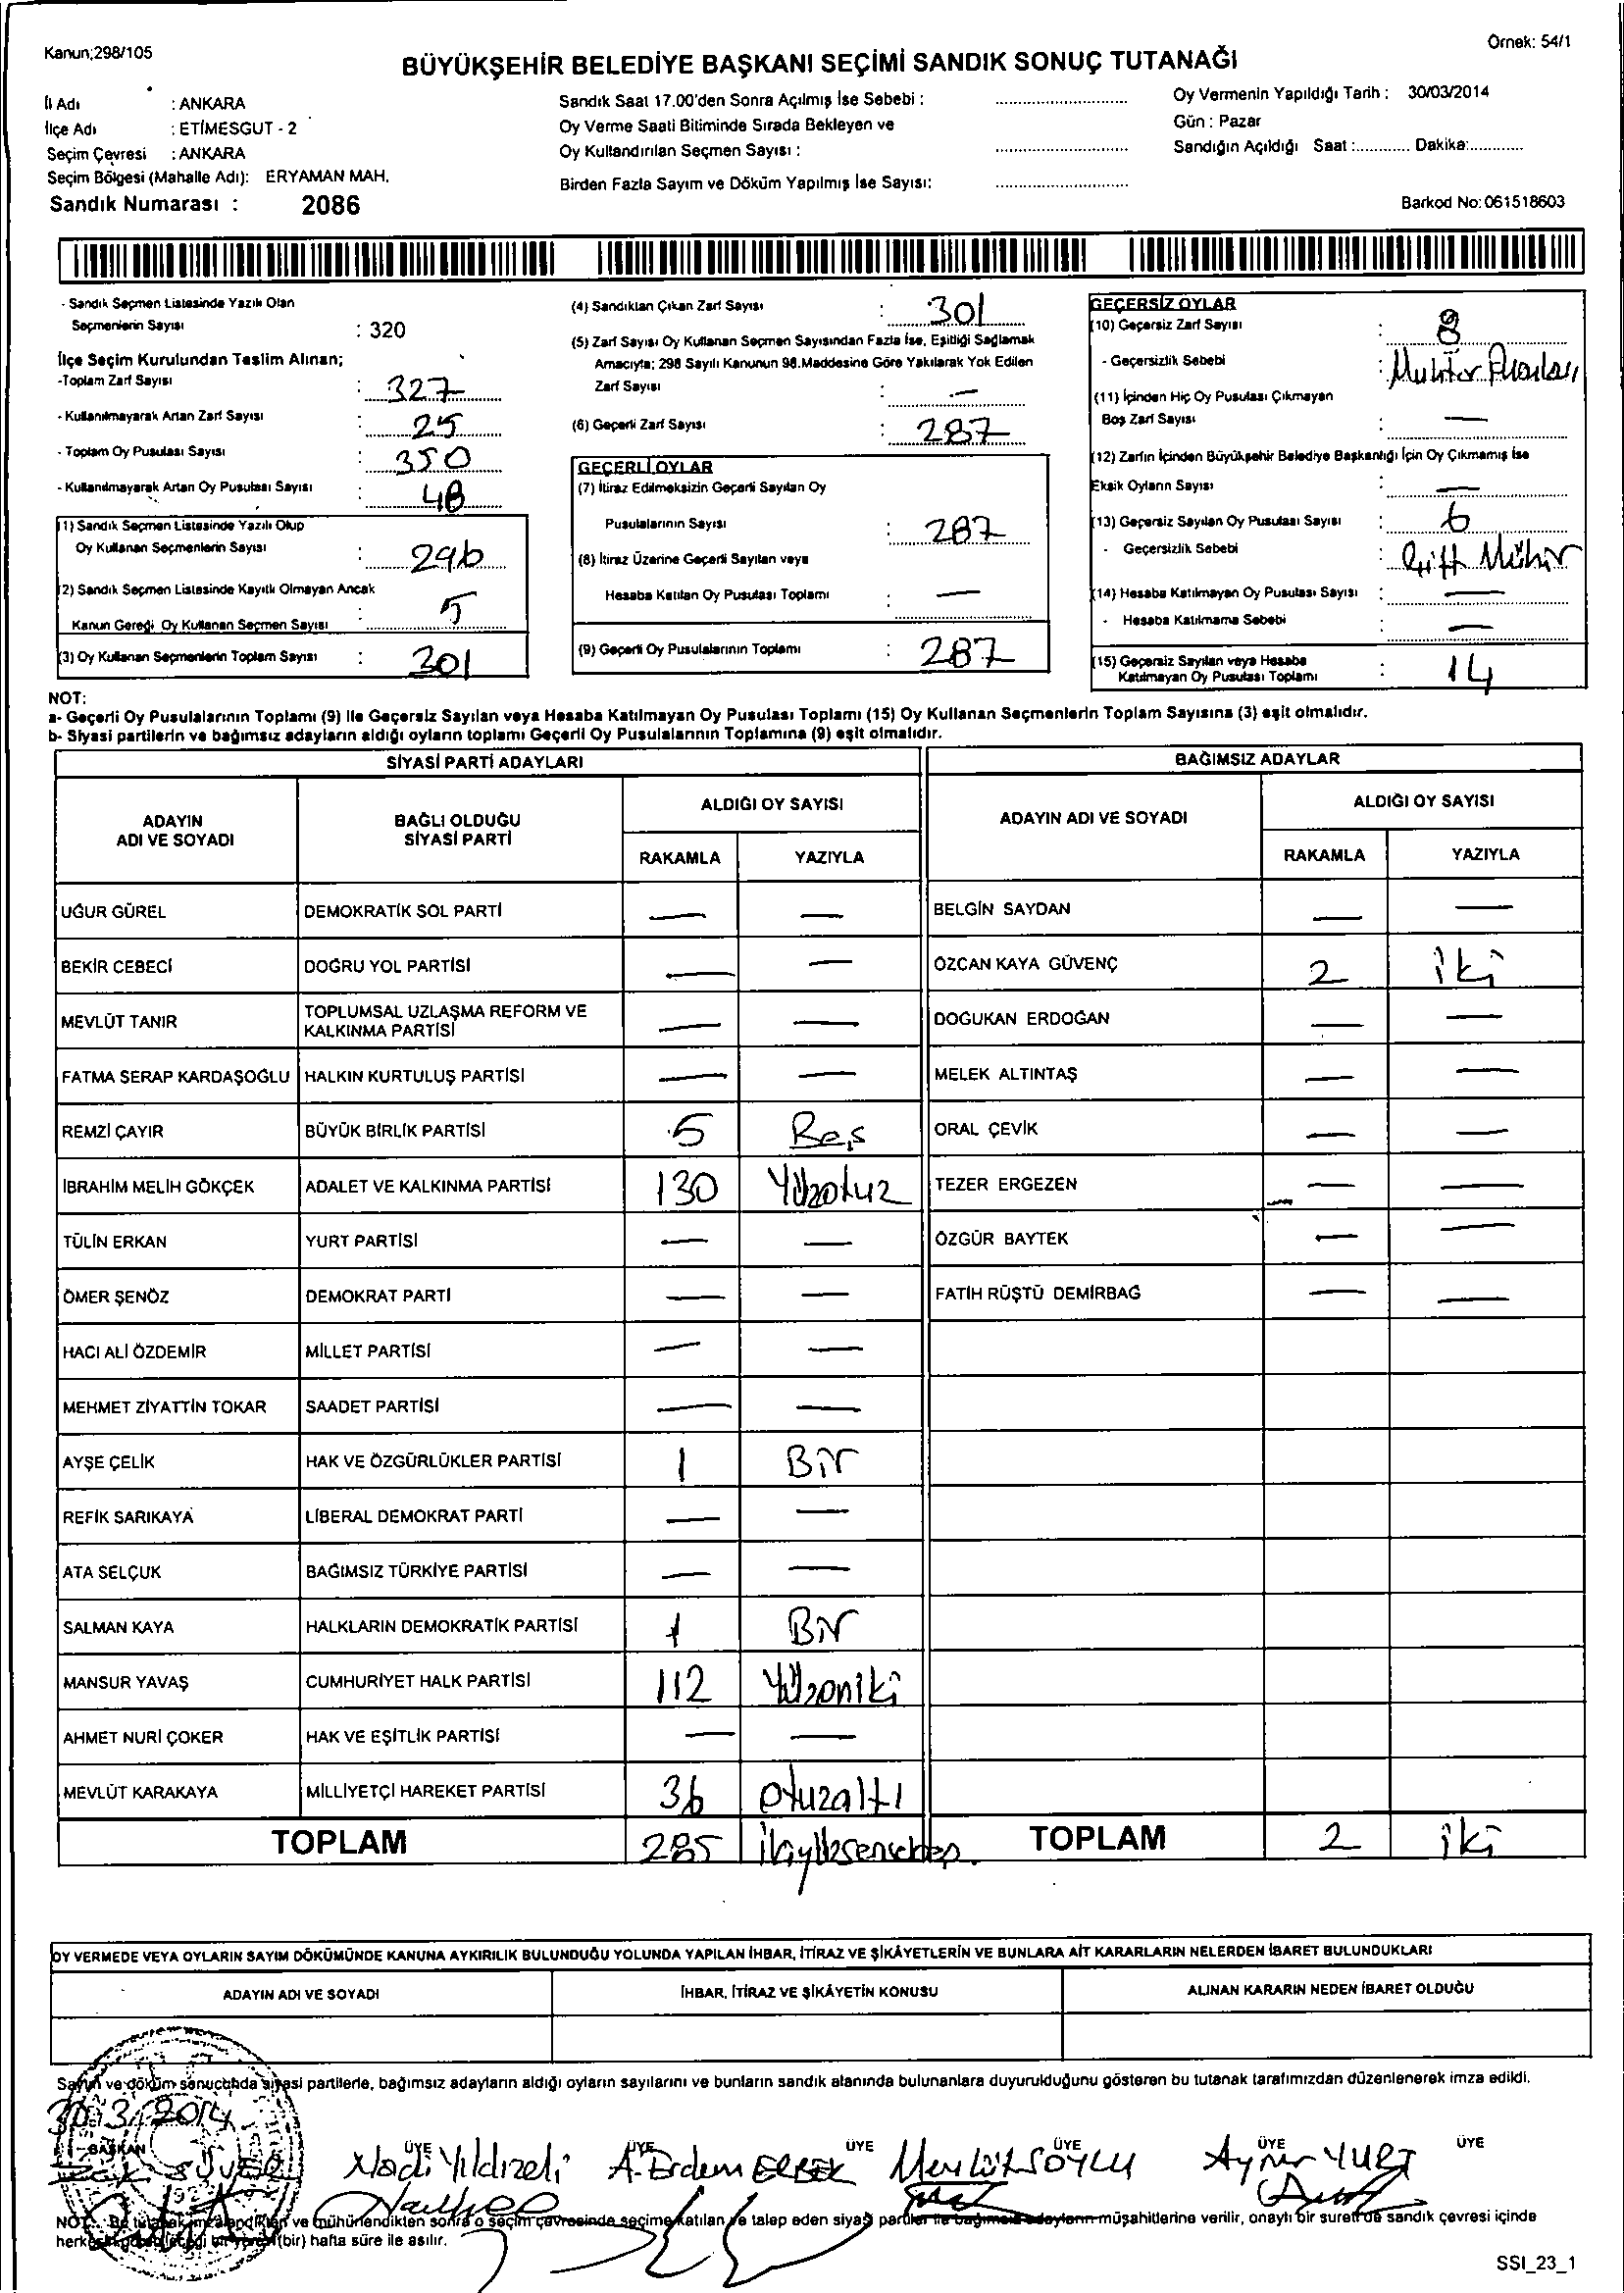 Kanun;298/105
Örnek: 54/1
BÜYÜKŞEHİR BELEDİYE BAŞKANI SEÇİMİ SANDIK SONUÇ TUTANAĞI
İl Adı : ANKARA
İlçe Adı : ETİMESGUT - 2
Seçim Çevresi : ANKARA
Seçim Bölgesi (Mahalle Adı): ERYAMAN MAH.
Sandık Numarası : 2086
Sandık Saat 17.00'den Sonra Açılmış İse Sebebi :
Oy Verme Saati Bitiminde Sırada Bekleyen ve
Oy Kullandırılan Seçmen Sayısı :
Birden Fazla Sayım ve Döküm Yapılmış İse Sayısı:
Oy Vermenin Yapıldığı Tarih : 30/03/2014
Gün : Pazar
Sandığın Açıldığı Saat :............ Dakika:............
Barkod No:061518603
- Sandık Seçmen Listesinde Yazılı Olan
Seçmenlerin Sayısı : 320
İlçe Seçim Kurulundan Teslim Alınan;
-Toplam Zarf Sayısı : 327
- Kullanılmayarak Artan Zarf Sayısı : 25
- Toplam Oy Pusulası Sayısı : 350
- Kullanılmayarak Artan Oy Pusulası Sayısı : 48
(1) Sandık Seçmen Listesinde Yazılı Olup
Oy Kullanan Seçmenlerin Sayısı : 296
(2) Sandık Seçmen Listesinde Kayıtlı Olmayan Ancak
Kanun Gereği Oy Kullanan Seçmen Sayısı : 5
(3) Oy Kullanan Seçmenlerin Toplam Sayısı : 301
(4) Sandıktan Çıkan Zarf Sayısı : 301
(5) Zarf Sayısı Oy Kullanan Seçmen Sayısından Fazla İse, Eşitliği Sağlamak
Amacıyla; 298 Sayılı Kanunun 98.Maddesine Göre Yakılarak Yok Edilen
Zarf Sayısı : —
(6) Geçerli Zarf Sayısı : 287
GEÇERLİ OYLAR
(7) İtiraz Edilmeksizin Geçerli Sayılan Oy
Pusulalarının Sayısı : 287
(8) İtiraz Üzerine Geçerli Sayılan veya
Hesaba Katılan Oy Pusulası Toplamı : —
(9) Geçerli Oy Pusulalarının Toplamı : 287
GEÇERSİZ OYLAR
(10) Geçersiz Zarf Sayısı : 8
- Geçersizlik Sebebi : Muhtar Pusulası
(11) İçinden Hiç Oy Pusulası Çıkmayan
Boş Zarf Sayısı : —
(12) Zarfın İçinden Büyükşehir Belediye Başkanlığı İçin Oy Çıkmamış İse
Eksik Oyların Sayısı : —
(13) Geçersiz Sayılan Oy Pusulası Sayısı : 6
- Geçersizlik Sebebi : Çift Mühür
(14) Hesaba Katılmayan Oy Pusulası Sayısı : —
- Hesaba Katılmama Sebebi : —
(15) Geçersiz Sayılan veya Hesaba
Katılmayan Oy Pusulası Toplamı : 14
NOT:
a- Geçerli Oy Pusulalarının Toplamı (9) ile Geçersiz Sayılan veya Hesaba Katılmayan Oy Pusulası Toplamı (15) Oy Kullanan Seçmenlerin Toplam Sayısına (3) eşit olmalıdır.
b- Siyasi partilerin ve bağımsız adayların aldığı oyların toplamı Geçerli Oy Pusulalarının Toplamına (9) eşit olmalıdır.
SİYASİ PARTİ ADAYLARI
ADAYIN ADI VE SOYADI
BAĞLI OLDUĞU SİYASİ PARTİ
ALDIĞI OY SAYISI
RAKAMLA YAZIYLA
UĞUR GÜREL DEMOKRATİK SOL PARTİ — —
BEKİR CEBECİ DOĞRU YOL PARTİSİ — —
MEVLÜT TANIR TOPLUMSAL UZLAŞMA REFORM VE KALKINMA PARTİSİ — —
FATMA SERAP KARDAŞOĞLU HALKIN KURTULUŞ PARTİSİ — —
REMZİ ÇAYIR BÜYÜK BİRLİK PARTİSİ 5 Beş
İBRAHİM MELİH GÖKÇEK ADALET VE KALKINMA PARTİSİ 130 Yüzotuz
TÜLİN ERKAN YURT PARTİSİ — —
ÖMER ŞENÖZ DEMOKRAT PARTİ — —
HACI ALİ ÖZDEMİR MİLLET PARTİSİ — —
MEHMET ZİYATTİN TOKAR SAADET PARTİSİ — —
AYŞE ÇELİK HAK VE ÖZGÜRLÜKLER PARTİSİ 1 Bir
REFİK SARIKAYA LİBERAL DEMOKRAT PARTİ — —
ATA SELÇUK BAĞIMSIZ TÜRKİYE PARTİSİ — —
SALMAN KAYA HALKLARIN DEMOKRATİK PARTİSİ 1 Bir
MANSUR YAVAŞ CUMHURİYET HALK PARTİSİ 112 Yüzoniki
AHMET NURİ ÇOKER HAK VE EŞİTLİK PARTİSİ — —
MEVLÜT KARAKAYA MİLLİYETÇİ HAREKET PARTİSİ 36 otuzaltı
TOPLAM 285
BAĞIMSIZ ADAYLAR
ADAYIN ADI VE SOYADI
ALDIĞI OY SAYISI
RAKAMLA YAZIYLA
BELGİN SAYDAN — —
ÖZCAN KAYA GÜVENÇ 2 iki
DOĞUKAN ERDOĞAN — —
MELEK ALTINTAŞ — —
ORAL ÇEVİK — —
TEZER ERGEZEN — —
ÖZGÜR BAYTEK — —
FATİH RÜŞTÜ DEMİRBAĞ — —
TOPLAM 2 iki
OY VERMEDE VEYA OYLARIN SAYIM DÖKÜMÜNDE KANUNA AYKIRILIK BULUNDUĞU YOLUNDA YAPILAN İHBAR, İTİRAZ VE ŞİKÂYETLERİN VE BUNLARA AİT KARARLARIN NELERDEN İBARET BULUNDUKLARI
ADAYIN ADI VE SOYADI
İHBAR, İTİRAZ VE ŞİKÂYETİN KONUSU
ALINAN KARARIN NEDEN İBARET OLDUĞU
Sayım ve döküm sonucunda siyasi partilerle, bağımsız adayların aldığı oyların sayılarını ve bunların sandık alanında bulunanlara duyurulduğunu gösteren bu tutanak tarafımızdan düzenlenerek imza edildi.
30/3/2014
BAŞKAN ÜYE ÜYE ÜYE ÜYE ÜYE ÜYE
Nadi Yıldızeli A. Erdem Mevlüt SOYLU Aynur YURT
NOT: Bu tutanak imzalandıktan ve mühürlendikten sonra o seçim çevresinde seçime katılan ve talep eden siyasi partiler ile bağımsız adayların müşahitlerine verilir, onaylı bir sureti de sandık çevresi içinde
(bir) hafta süre ile asılır.
SSI_23_1